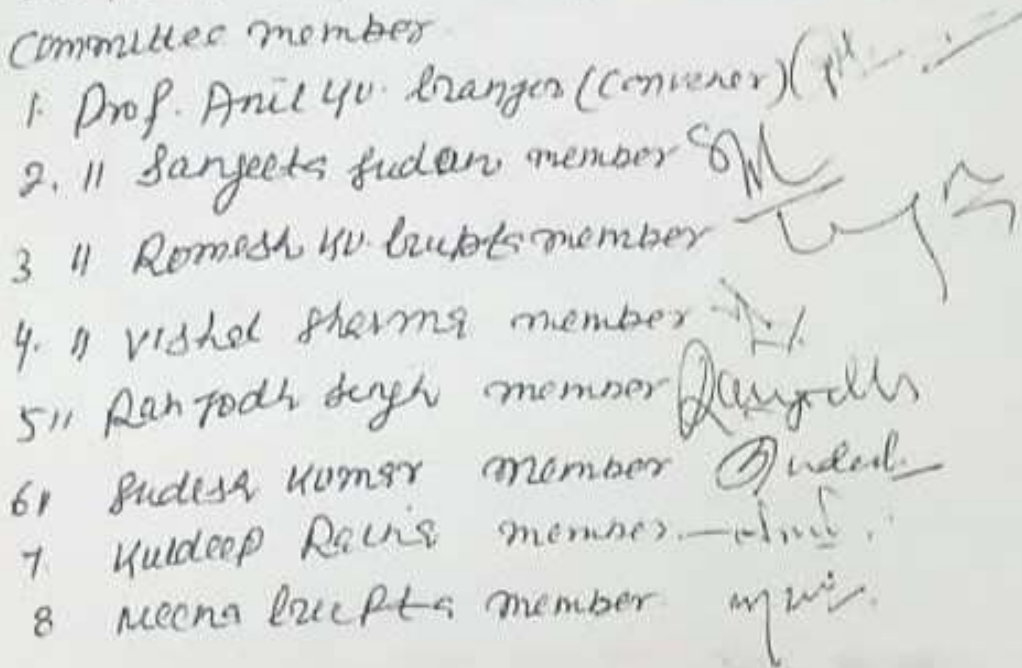 Committee member
1. Prof. Anil Ku. Granger (Convener)
2. 11 Sangeeta Sudan member
3 11 Romesh Ku. Gupta member
4. 11 Vishal Sharma member
5 11 Ranjodh Singh member Ranjodh
6 11 Sudesh Kumar member Sudesh
7. Kuldeep Raina member
8 Meena Gupta member